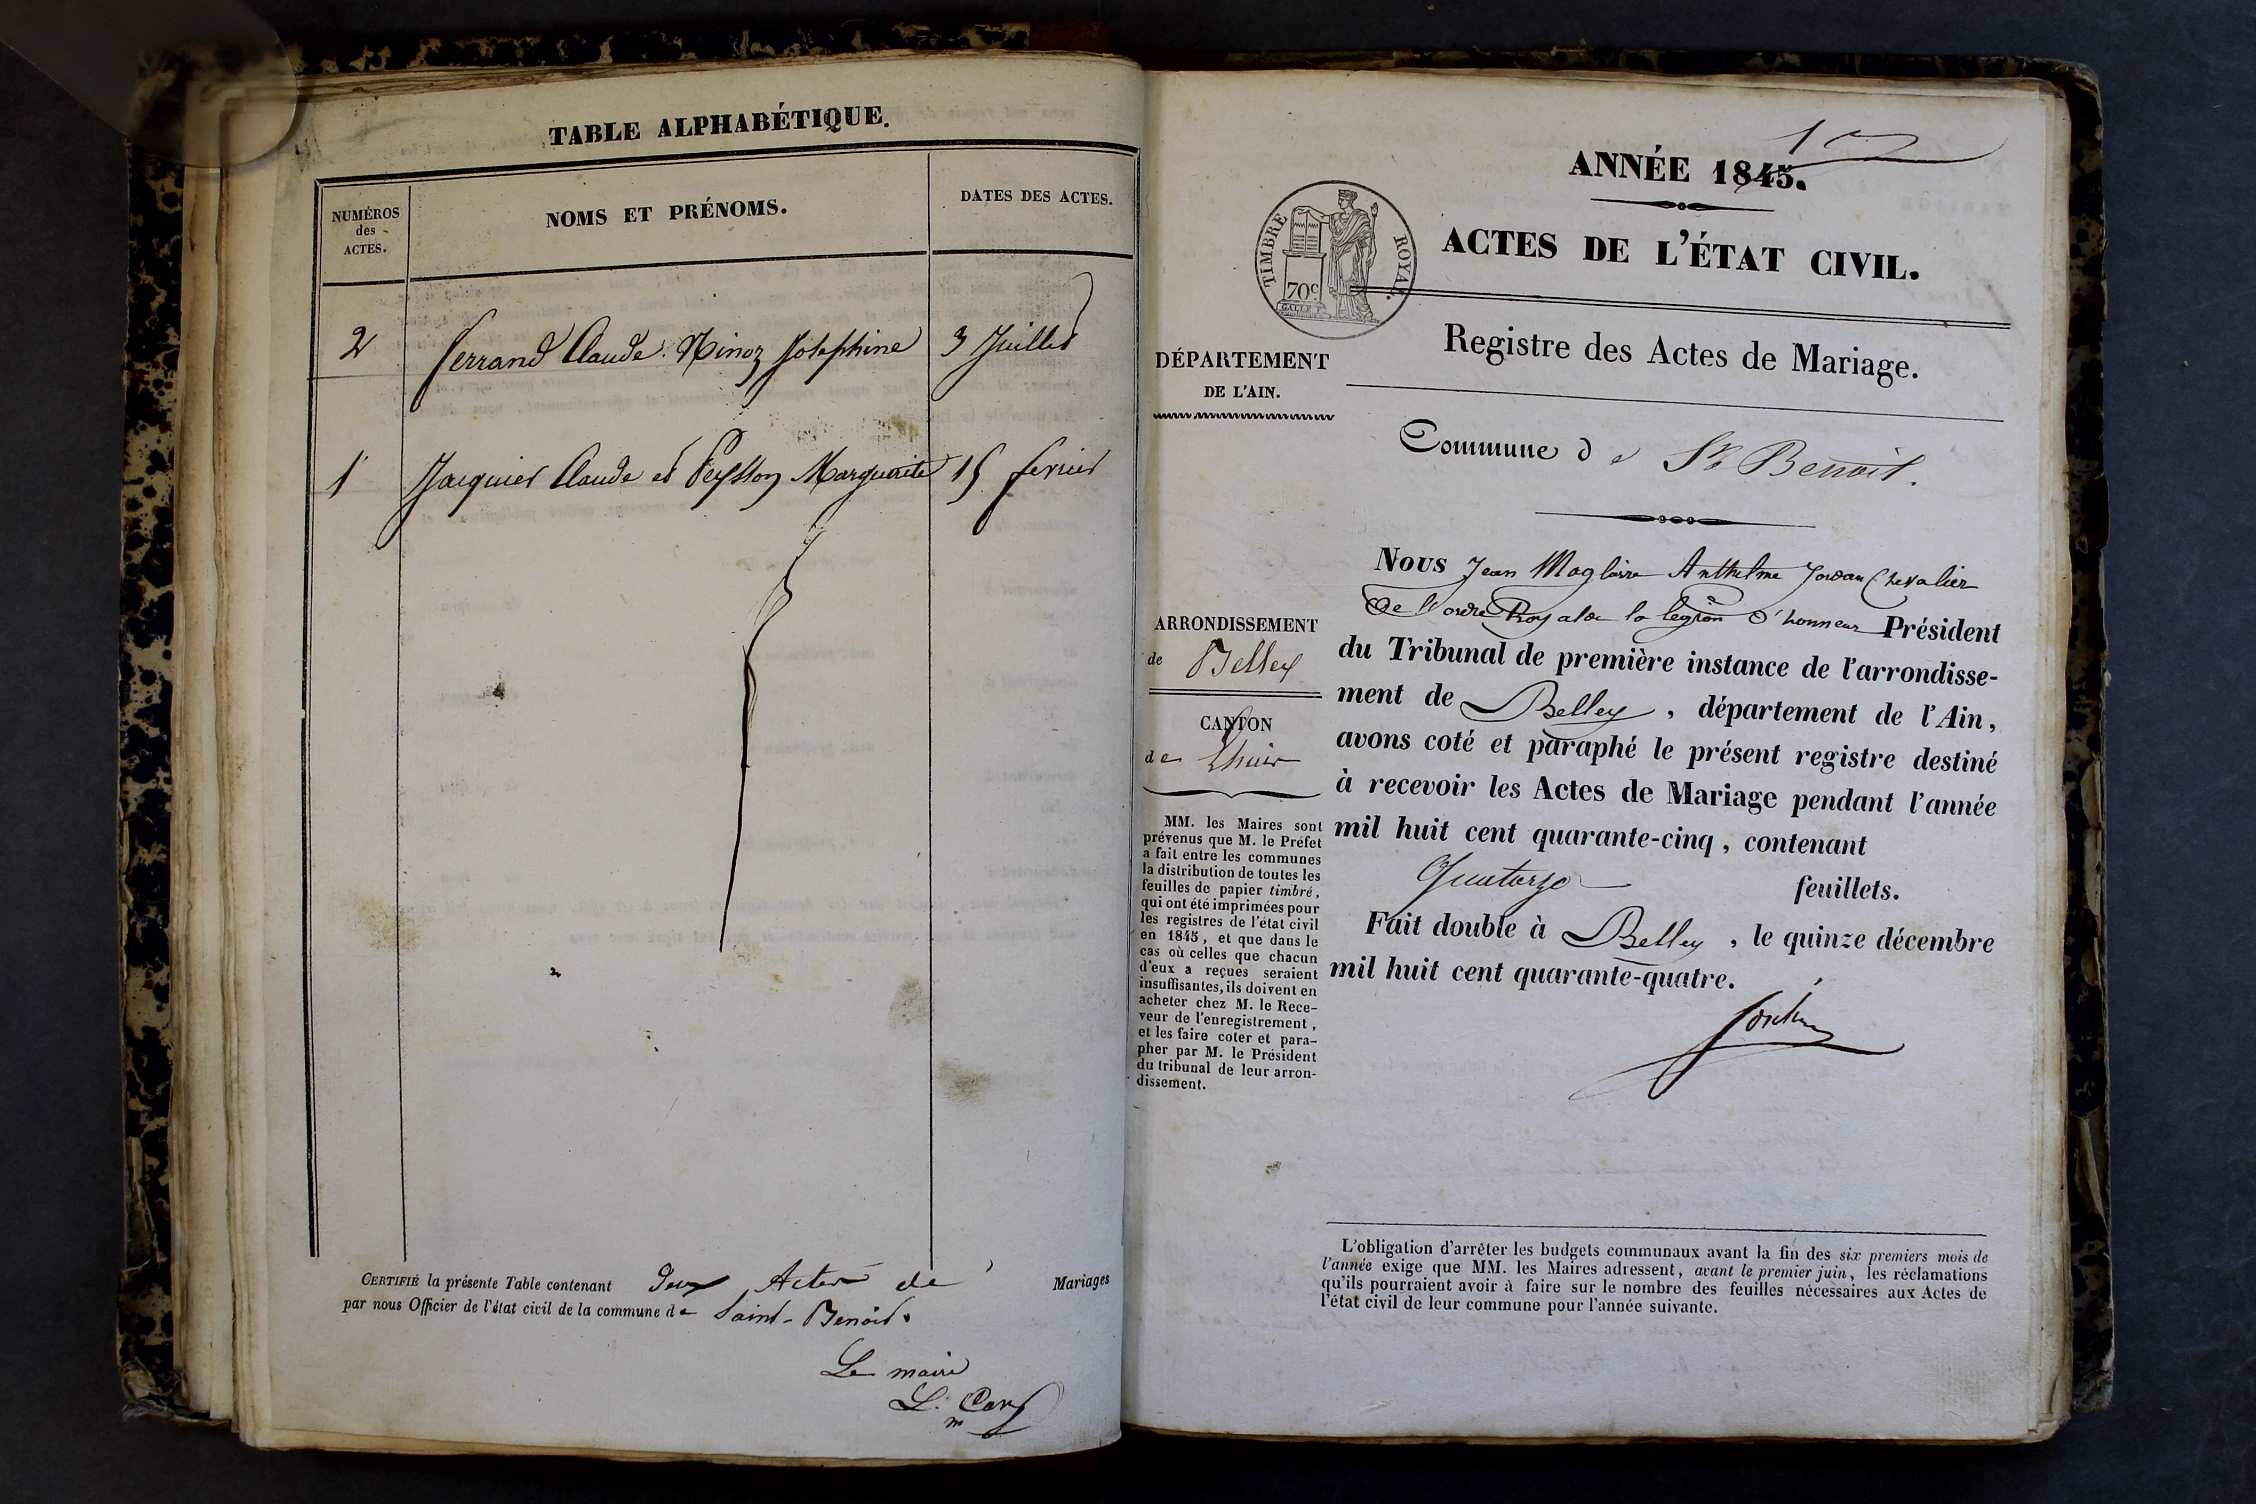 TABLE ALPHABÉTIQUE.
NUMÉROS
des
ACTES.
NOMS ET PRÉNOMS.
DATES DES ACTES.
2 ferrand Claude. Ninoz Josephine 3 Juillet
1 Jacquier Claude et Peysson Marguerite 15 fevrier
CERTIFIÉ la présente Table contenant Deux Actes de Mariages
par nous Officier de l'état civil de la commune de Saint-Benoit.
Le maire
ANNÉE 1845.
TIMBRE ROYAL
70c
ACTES DE L'ÉTAT CIVIL.
Registre des Actes de Mariage.
DÉPARTEMENT
DE L'AIN.
Commune de St Benoit.
ARRONDISSEMENT
de Belley
CANTON
de Lhuis
MM. les Maires sont
prévenus que M. le Préfet
a fait entre les communes
la distribution de toutes les
feuilles de papier timbré,
qui ont été imprimées pour
les registres de l'état civil
en 1845, et que dans le
cas où celles que chacun
d'eux a reçues seraient
insuffisantes, ils doivent en
acheter chez M. le Rece-
veur de l'enregistrement,
et les faire coter et para-
pher par M. le Président
du tribunal de leur arron-
dissement.
Nous Jean Magloire Anthelme Jordan Chevalier
De l'ordre Royal de la legion d'honneur Président
du Tribunal de première instance de l'arrondisse-
ment de Belley, département de l'Ain,
avons coté et paraphé le présent registre destiné
à recevoir les Actes de Mariage pendant l'année
mil huit cent quarante-cinq, contenant
Quatorze feuillets.
Fait double à Belley, le quinze décembre
mil huit cent quarante-quatre.
L'obligation d'arrêter les budgets communaux avant la fin des six premiers mois de
l'année exige que MM. les Maires adressent, avant le premier juin, les réclamations
qu'ils pourraient avoir à faire sur le nombre des feuilles nécessaires aux Actes de
l'état civil de leur commune pour l'année suivante.